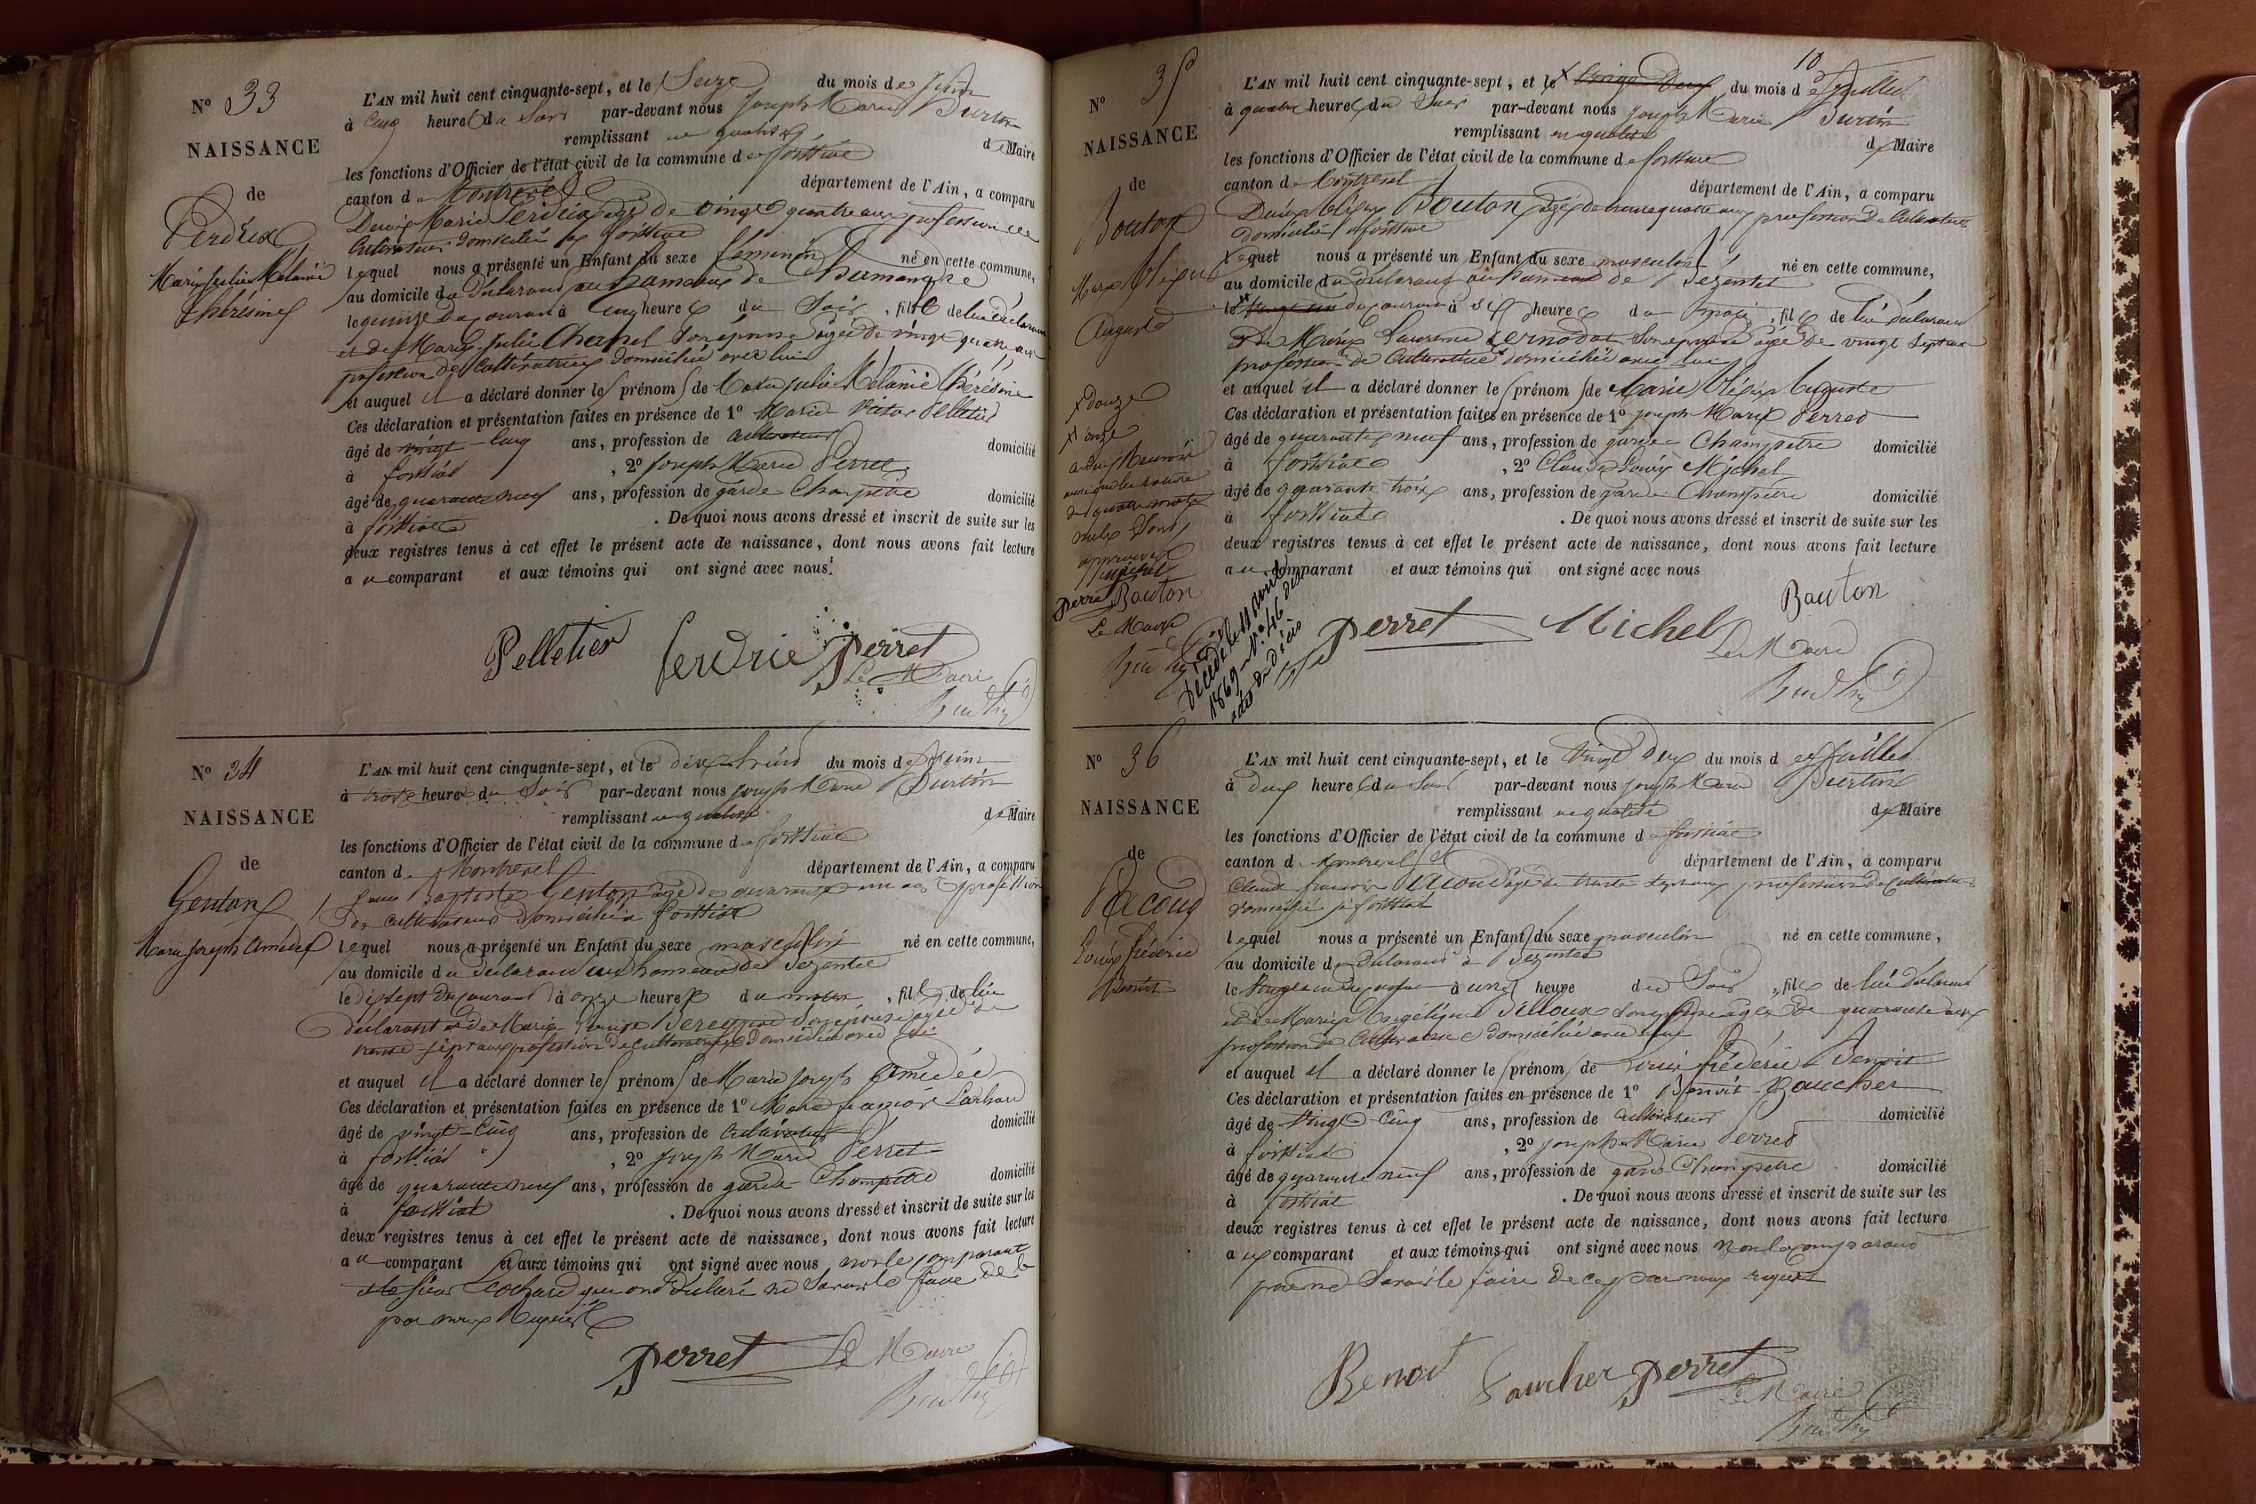 N° 33
NAISSANCE
de
Perdrix
Marie Julie Mélanie
Thérésine
L'AN mil huit cent cinquante-sept, et le Seize du mois de Juin
à Cinq heures du Soir par-devant nous Joseph Marie Burtin
remplissant en qualité de Maire
les fonctions d'Officier de l'état civil de la commune de foissiat
canton de Montrevel département de l'Ain, a comparu
Denis Marie Perdrix âgé de vingt quatre ans profession de
Cultivateur domicilié à foissiat
lequel nous a présenté un Enfant du sexe féminin né en cette commune,
au domicile du déclarant au hameau de
le quinze du courant à cinq heures du Soir, fille de lui déclarant
et de Marie Julie Chapel son épouse âgée de vingt quatre ans
profession de Cultivatrice domiciliée avec lui
et auquel il a déclaré donner les prénoms de Marie Julie Mélanie Thérésine
Ces déclaration et présentation faites en présence de 1° Marie Victor Pelletier
âgé de vingt-Cinq ans, profession de Cultivateur domicilié
à foissiat, 2° Joseph Marie Perret
âgé de quarante neuf ans, profession de garde Champêtre domicilié
à foissiat. De quoi nous avons dressé et inscrit de suite sur les
deux registres tenus à cet effet le présent acte de naissance, dont nous avons fait lecture
au comparant et aux témoins qui ont signé avec nous.
Pelletier Perdrix Perret
Le Maire
Burtin
N° 34
NAISSANCE
de
Genton
Marie Joseph Amédée
L'AN mil huit cent cinquante-sept, et le dix huit du mois de Juin
à trois heures du Soir par-devant nous Joseph Marie Burtin
remplissant en qualité de Maire
les fonctions d'Officier de l'état civil de la commune de foissiat
canton de Montrevel département de l'Ain, a comparu
Jean Baptiste Genton âgé de quarante un ans profession
de cultivateur domicilié à foissiat
lequel nous a présenté un Enfant du sexe masculin né en cette commune,
au domicile du déclarant au hameau de Sezentet
le dix sept du courant à onze heures du matin, fils de lui
déclarant et de Marie son épouse âgée de
trente-sept ans profession de cultivatrice domiciliée avec lui
et auquel il a déclaré donner les prénoms de Marie Joseph Amédée
Ces déclaration et présentation faites en présence de 1° Marie françois
âgé de vingt-Cinq ans, profession de Cultivateur domicilié
à foissiat, 2° Joseph Marie Perret
âgé de quarante neuf ans, profession de garde Champêtre domicilié
à foissiat. De quoi nous avons dressé et inscrit de suite sur les
deux registres tenus à cet effet le présent acte de naissance, dont nous avons fait lecture
au comparant et aux témoins qui ont signé avec nous non le comparant
et le sieur qui ont déclaré ne Savoir le faire de ce
par nous Requis
Perret Le Maire
Burtin
10
N° 35
NAISSANCE
de
Bouton
Marie Alexis
Auguste
L'AN mil huit cent cinquante-sept, et le X vingt deux du mois de Juillet
à quatre heures du Soir par-devant nous Joseph Marie Burtin
remplissant en qualité de Maire
les fonctions d'Officier de l'état civil de la commune de foissiat
canton de Montrevel département de l'Ain, a comparu
Denis Alexis Bouton âgé de trente quatre ans profession de Cultivateur
domicilié à foissiat
lequel nous a présenté un Enfant du sexe masculin né en cette commune,
au domicile du déclarant au hameau de Sezentet
le vingt un du courant à Six heures du, fils de lui déclarant
et de Marie Laurence Pernodat Son épouse âgée de vingt Sept ans
profession de Cultivatrice domiciliée avec lui
et auquel il a déclaré donner les prénoms de Marie Alexis Auguste
Ces déclaration et présentation faites en présence de 1° Joseph Marie Perret
âgé de quarante neuf ans, profession de garde Champêtre domicilié
à foissiat, 2° Claude Louis Michel
âgé de quarante trois ans, profession de garde Champêtre domicilié
à foissiat. De quoi nous avons dressé et inscrit de suite sur les
deux registres tenus à cet effet le présent acte de naissance, dont nous avons fait lecture
au comparant et aux témoins qui ont signé avec nous
X douze
X onze
nuls Sont
approuvés
Michel
Perret Bouton
Le Maire
Burtin
Décédé le 11 avril
1869 - N° 46 des
actes de décès
Perret Michel Bouton
Le Maire
Burtin
N° 36
NAISSANCE
de
Pacoud
Louis frédéric
Benoit
L'AN mil huit cent cinquante-sept, et le Vingt deux du mois de Juillet
à deux heures du Soir par-devant nous Joseph Marie Burtin
remplissant en qualité de Maire
les fonctions d'Officier de l'état civil de la commune de foissiat
canton de Montrevel département de l'Ain, a comparu
Claude françois Pacoud âgé de trente Sept ans profession de Cultivateur
domicilié à foissiat
lequel nous a présenté un Enfant du sexe masculin né en cette commune,
au domicile du déclarant à Sezentet
le vingt un du courant à une heure du Soir, fils de lui déclarant
et de Marie Angélique Velloux Son épouse âgée de quarante ans
profession de Cultivatrice domiciliée avec lui
et auquel il a déclaré donner les prénoms de Louis frédéric Benoit
Ces déclaration et présentation faites en présence de 1° Benoit Vaucher
âgé de Vingt-Cinq ans, profession de cultivateur domicilié
à foissiat, 2° Joseph Marie Perret
âgé de quarante neuf ans, profession de garde Champêtre domicilié
à foissiat. De quoi nous avons dressé et inscrit de suite sur les
deux registres tenus à cet effet le présent acte de naissance, dont nous avons fait lecture
au comparant et aux témoins qui ont signé avec nous Non le comparant
pour ne Savoir le faire de ce par nous requis
Benoit Vaucher Perret
Le Maire
Burtin